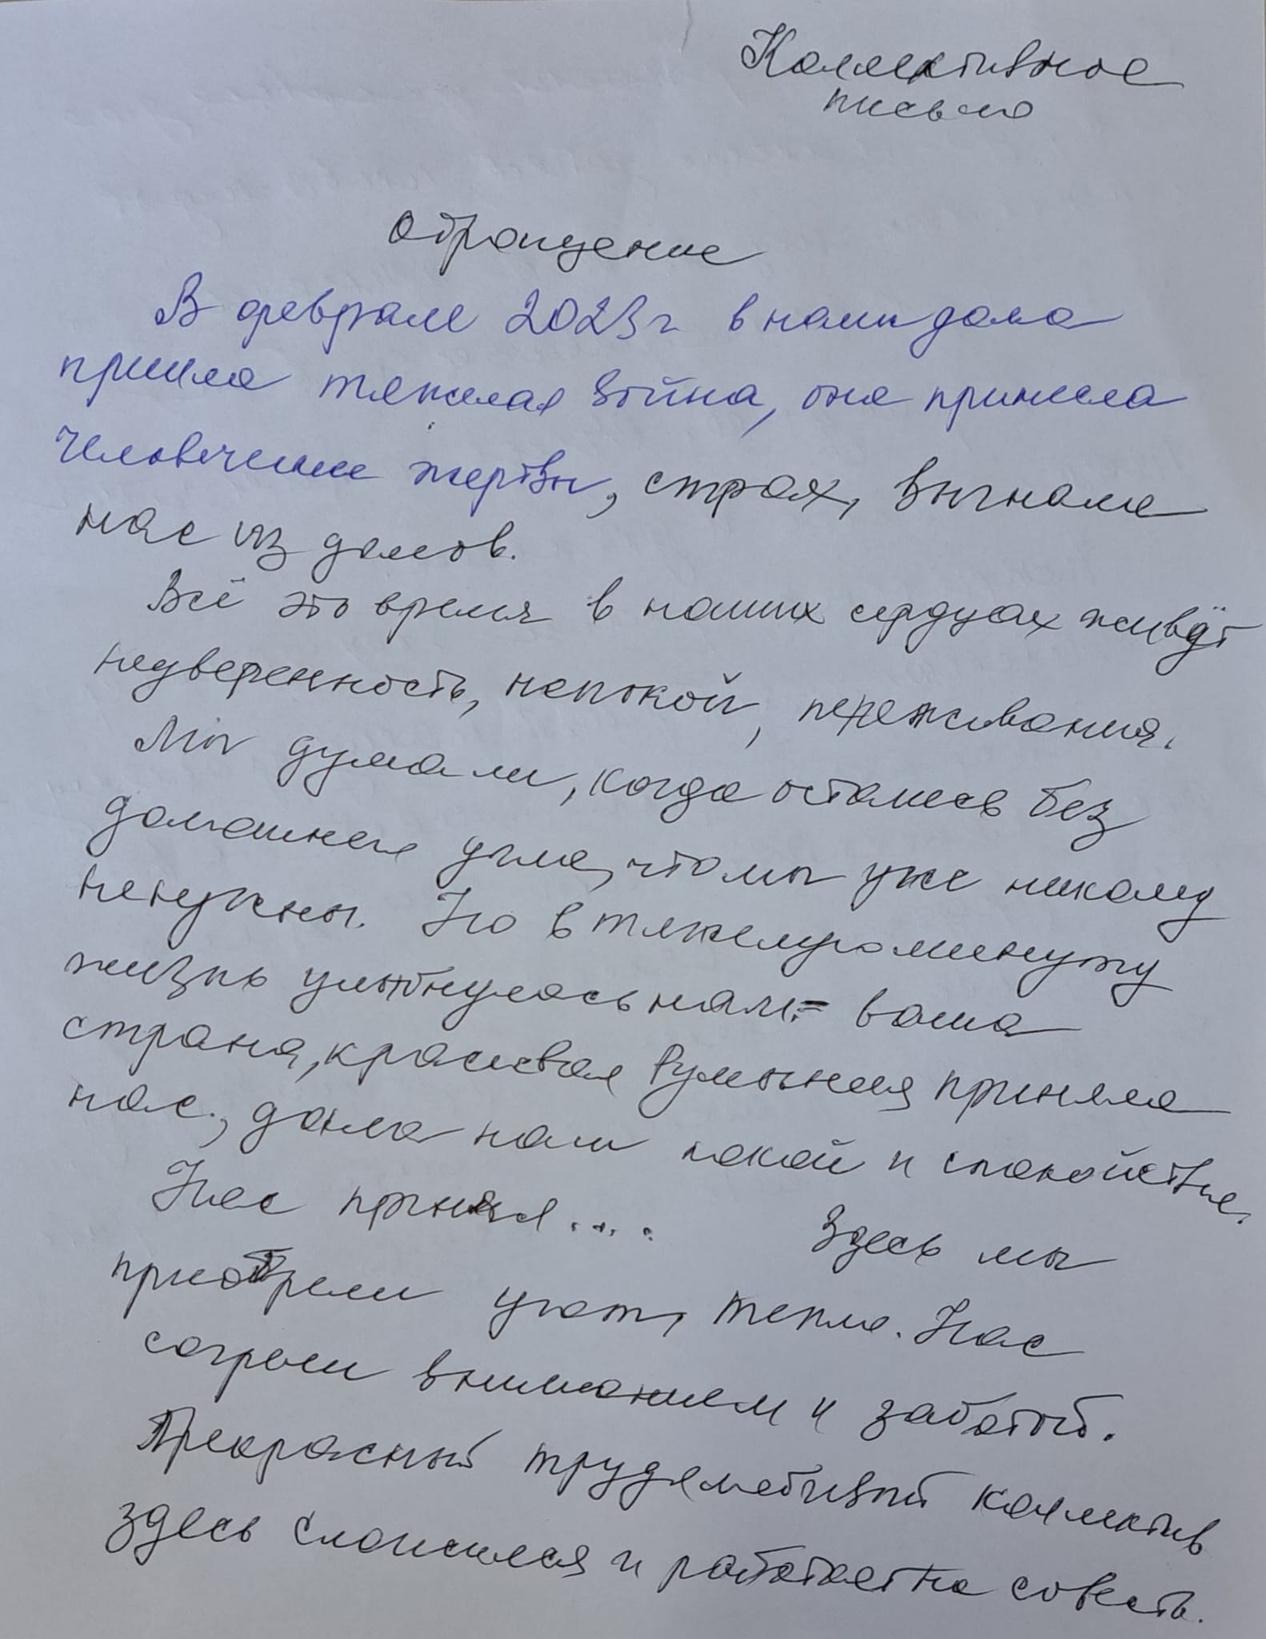 Коллективное
письмо
Обращение
В феврале 2023 г в наши дома
пришла тяжелая война, она принесла
человеческие жертвы, страх, выгнала
нас из домов.
Всё это время в наших сердцах живёт
неуверенность, непокой, переживания.
Мы думали, когда остались без
домашнего дыма, что мы уже никому
ненужны. Но в тяжелую минуту
жизнь улыбнулась нам - ваша
страна, красивая Румыния приняла
нас, дала нам покой и спокойствие.
Нас принял.... Здесь мы
приобрели уют, тепло. Нас
согрели вниманием и заботой.
Прекрасный трудолюбивый коллектив
здесь сложился и работает на совесть.